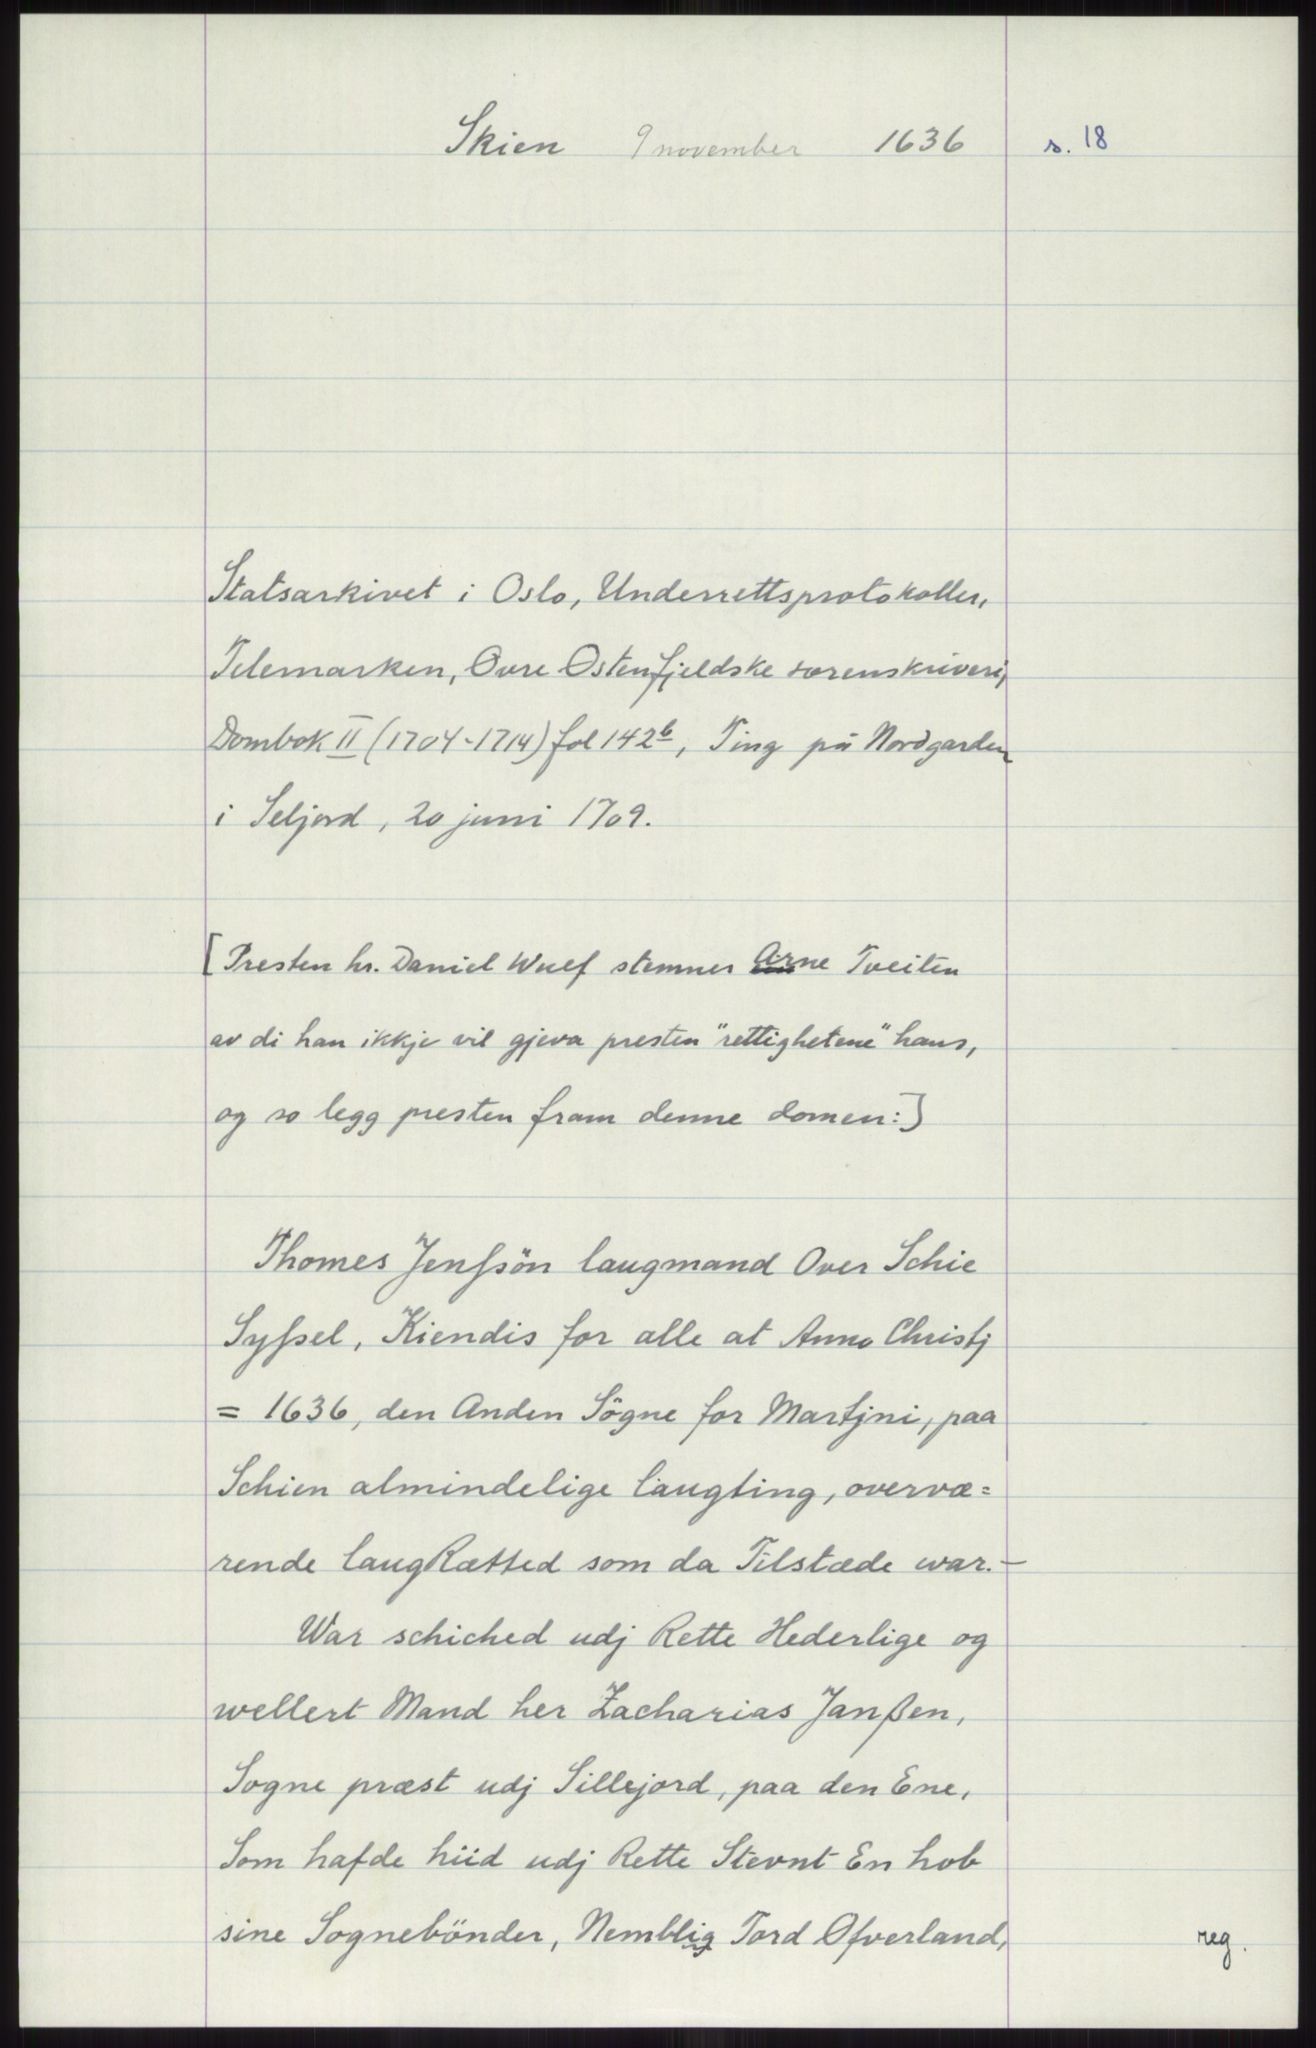 Skien 9 november 1636 s. 18
Statsarkivet i Oslo, Underrettsprotokoller,
Telemarken, Øvre Østenfjeldske sorenskriveri,
Dombok II (1704-1714) fol 142b, Ting på Nordgarden
i Seljord, 20 juni 1709.
[Presten hr. Daniel Wulf stemner Arne Tveiten
av di han ikkje vil gjeva presten "rettighetene" hans,
og so legg presten fram denne domen:]
Thomes Jenſsön laugmand Over Schie
Syſsel, Kiendis for alle at Anno Christj
= 1636, den Anden Sögne for Martjni, paa
Schien almindelige laugting, overvæ=
rende laugRætted som da Tilstæde war.—
War schiched udj Rette Hederlige og
wellert Mand her Zacharias Janßen,
Sogne præst udj Sillejord, paa den Ene,
Som hafde hiid udj Rette Stevnt En hob
sine Sognebönder, Nemblig Tord Ofverland,
reg.